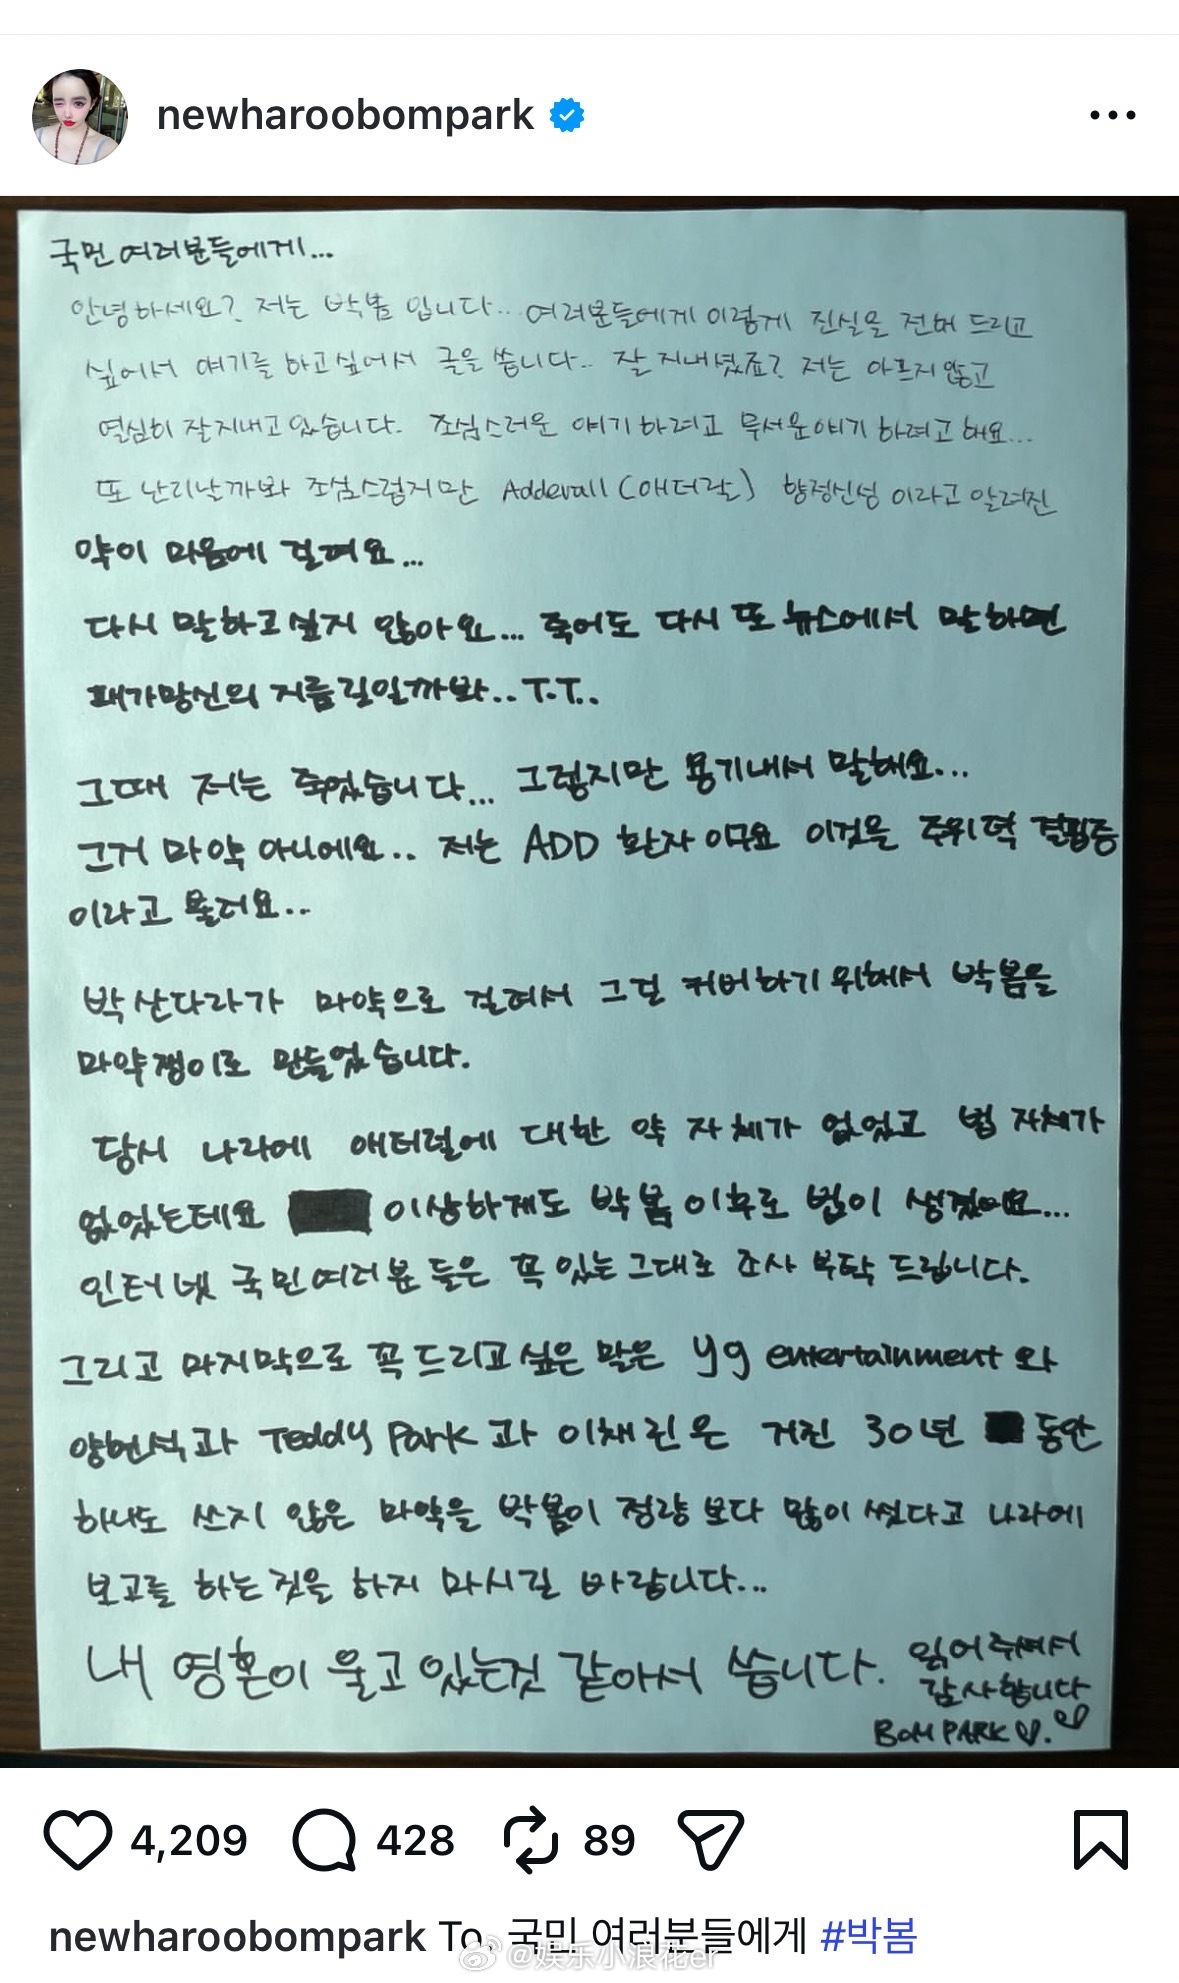 newharoobompark
국민 여러분들에게...
안녕하세요? 저는 박봄 입니다... 여러분들에게 이렇게 진실을 전해 드리고
싶어서 얘기를 하고싶어서 글을 씁니다.. 잘 지내셨죠? 저는 아프지 않고
열심히 잘지내고 있습니다. 조심스러운 얘기하려고 무서운얘기 하려고 해요...
또 난리날까봐 조심스럽지만 Adderall (애더럴) 향정신성 이라고 알려진
약이 마음에 걸려요...
다시 말하고싶지 않아요... 죽어도 다시 또 뉴스에서 말하면
패가망신의 지름길일까봐..T.T..
그때 저는 죽었습니다... 그렇지만 용기내서 말해요...
그거 마약 아니에요.. 저는 ADD 환자 이구요 이것은 주위력 결핍증
이라고 불러요..
박산다라가 마약으로 걸려서 그걸 커버하기 위해서 박봄을
마약쟁이로 만들었습니다.
당시 나라에 애터럴에 대한 약 자체가 없었고 법 자체가
없었는데요 이상하게도 박봄 이후로 법이 생겼어요...
인터넷 국민여러분 들은 꼭 있는그대로 조사 부탁 드립니다.
그리고 마지막으로 꼭 드리고싶은 말은 yg entertainment 와
양현석과 Teddy Park과 이채린은 거진 30년 동안
하나도 쓰지 않은 마약을 박봄이 정량 보다 많이 썼다고 나라에
보고를 하는 것을 하지 마시길 바랍니다...
내 영혼이 울고있는것 같아서 씁니다. 읽어주셔서
감사합니다
BOM PARK♡.♡
4,209 428 89
newharoobompark To. 국민 여러분들에게 #박봄
@娱乐小浪花er